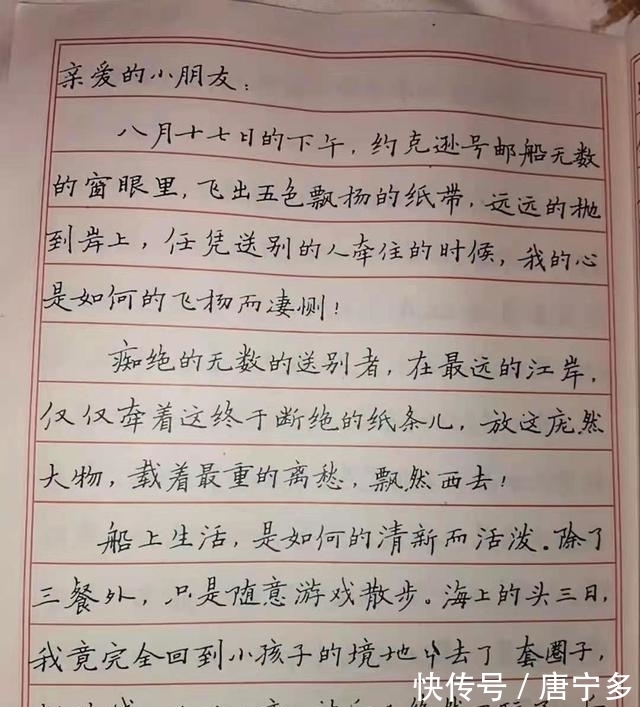 亲爱的小朋友：
八月十七日的下午，约克逊号邮船无数
的窗眼里，飞出五色飘杨的纸带，远远的抛
到岸上，任凭送别的人牵住的时候，我的心
是如何的飞杨而凄恻！
痴绝的无数的送别者，在最远的江岸，
仅仅牵着这终于断绝的纸条儿，放这庞然
大物，载着最重的离愁，飘然西去！
船上生活，是如何的清新而活泼。除了
三餐外，只是随意游戏散步。海上的头三日，
我竟完全回到小孩子的境地中去了 套圈子，
快传号／唐宁多